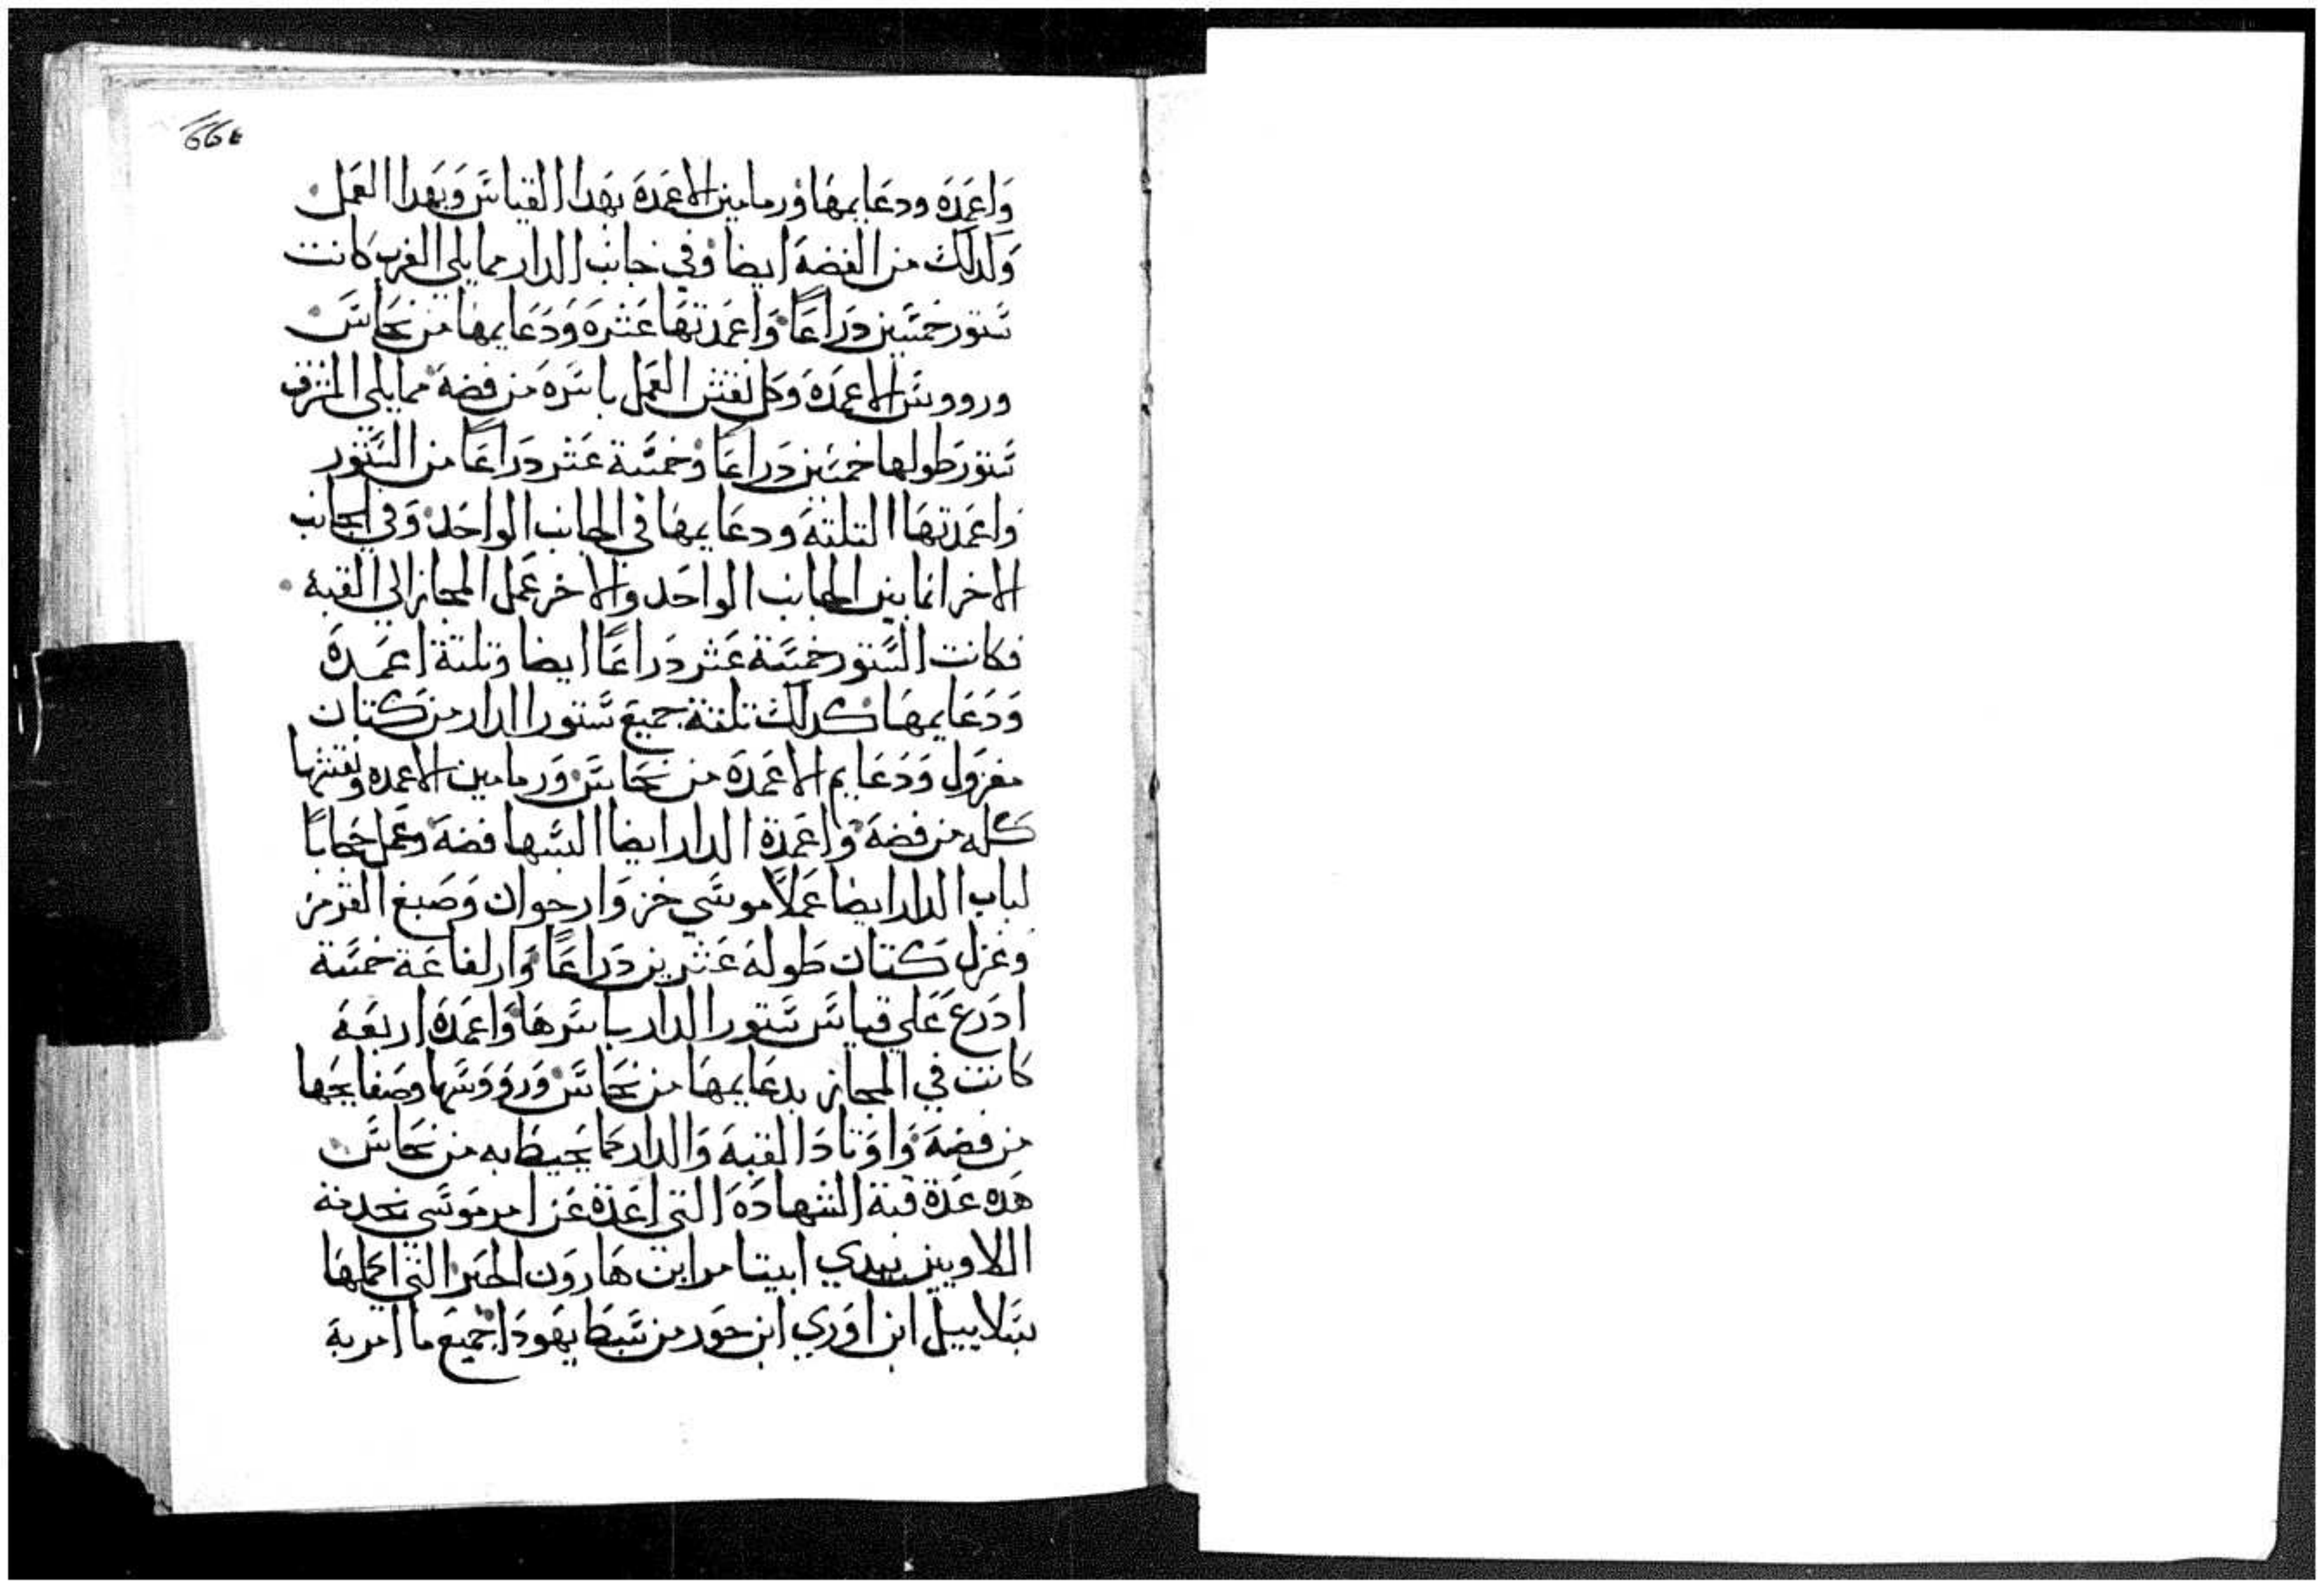 واعمدة ودعايمها ورمامين الاعمدة بهدا القياس وبهدا العمل
ولدلك من الفضة ايضا وفي جانب الدار مما يلي الغرب كانت
ستور خمسين دراعا واعمدتها عشرة ودعايمها من نحاس
ورووس الاعمدة وكل نقش العمل باسره من فضة مما يلي المشرق
ستور طولها خمسين دراعا وخمسة عشر دراعا من الستور
واعمدتها التلتة ودعايمها في الجانب الواحد وفي الجانب
الاخر انما بين الجانب الواحد والاخر عمل المجاز الي القبة
فكانت الستور خمسة عشر دراعا ايضا وتلتة اعمدة
ودعايمها كدلك تلتة جميع ستور الدار من كتان
مغزول ودعايم الاعمدة من نحاس ورمامين الاعمدة ونقشها
كله من فضة واعمدة الدار ايضا البسها فضة وعمل حجابا
لباب الدار ايضا عملا موشي خز وارجوان وصبغ القرمز
وغزل كتان طوله عشرين دراعا وارتفاعة خمسة
ادرع علي قياس ستور الدار باسرها واعمدة اربعة
كانت في المجاز بدعايمها من نحاس ورووسها وصفايحها
من فضة واوتاد القبة والدار مما يحيط به من نحاس
هده عدة قبة الشهادة التي اعدة عن امر موسي بخدمة
اللاويين بيدي ابيتامر ابن هارون الحبر التي اعملها
بتلاييل ابن اوري ابن حور من سبط يهودا جميع ما امر به